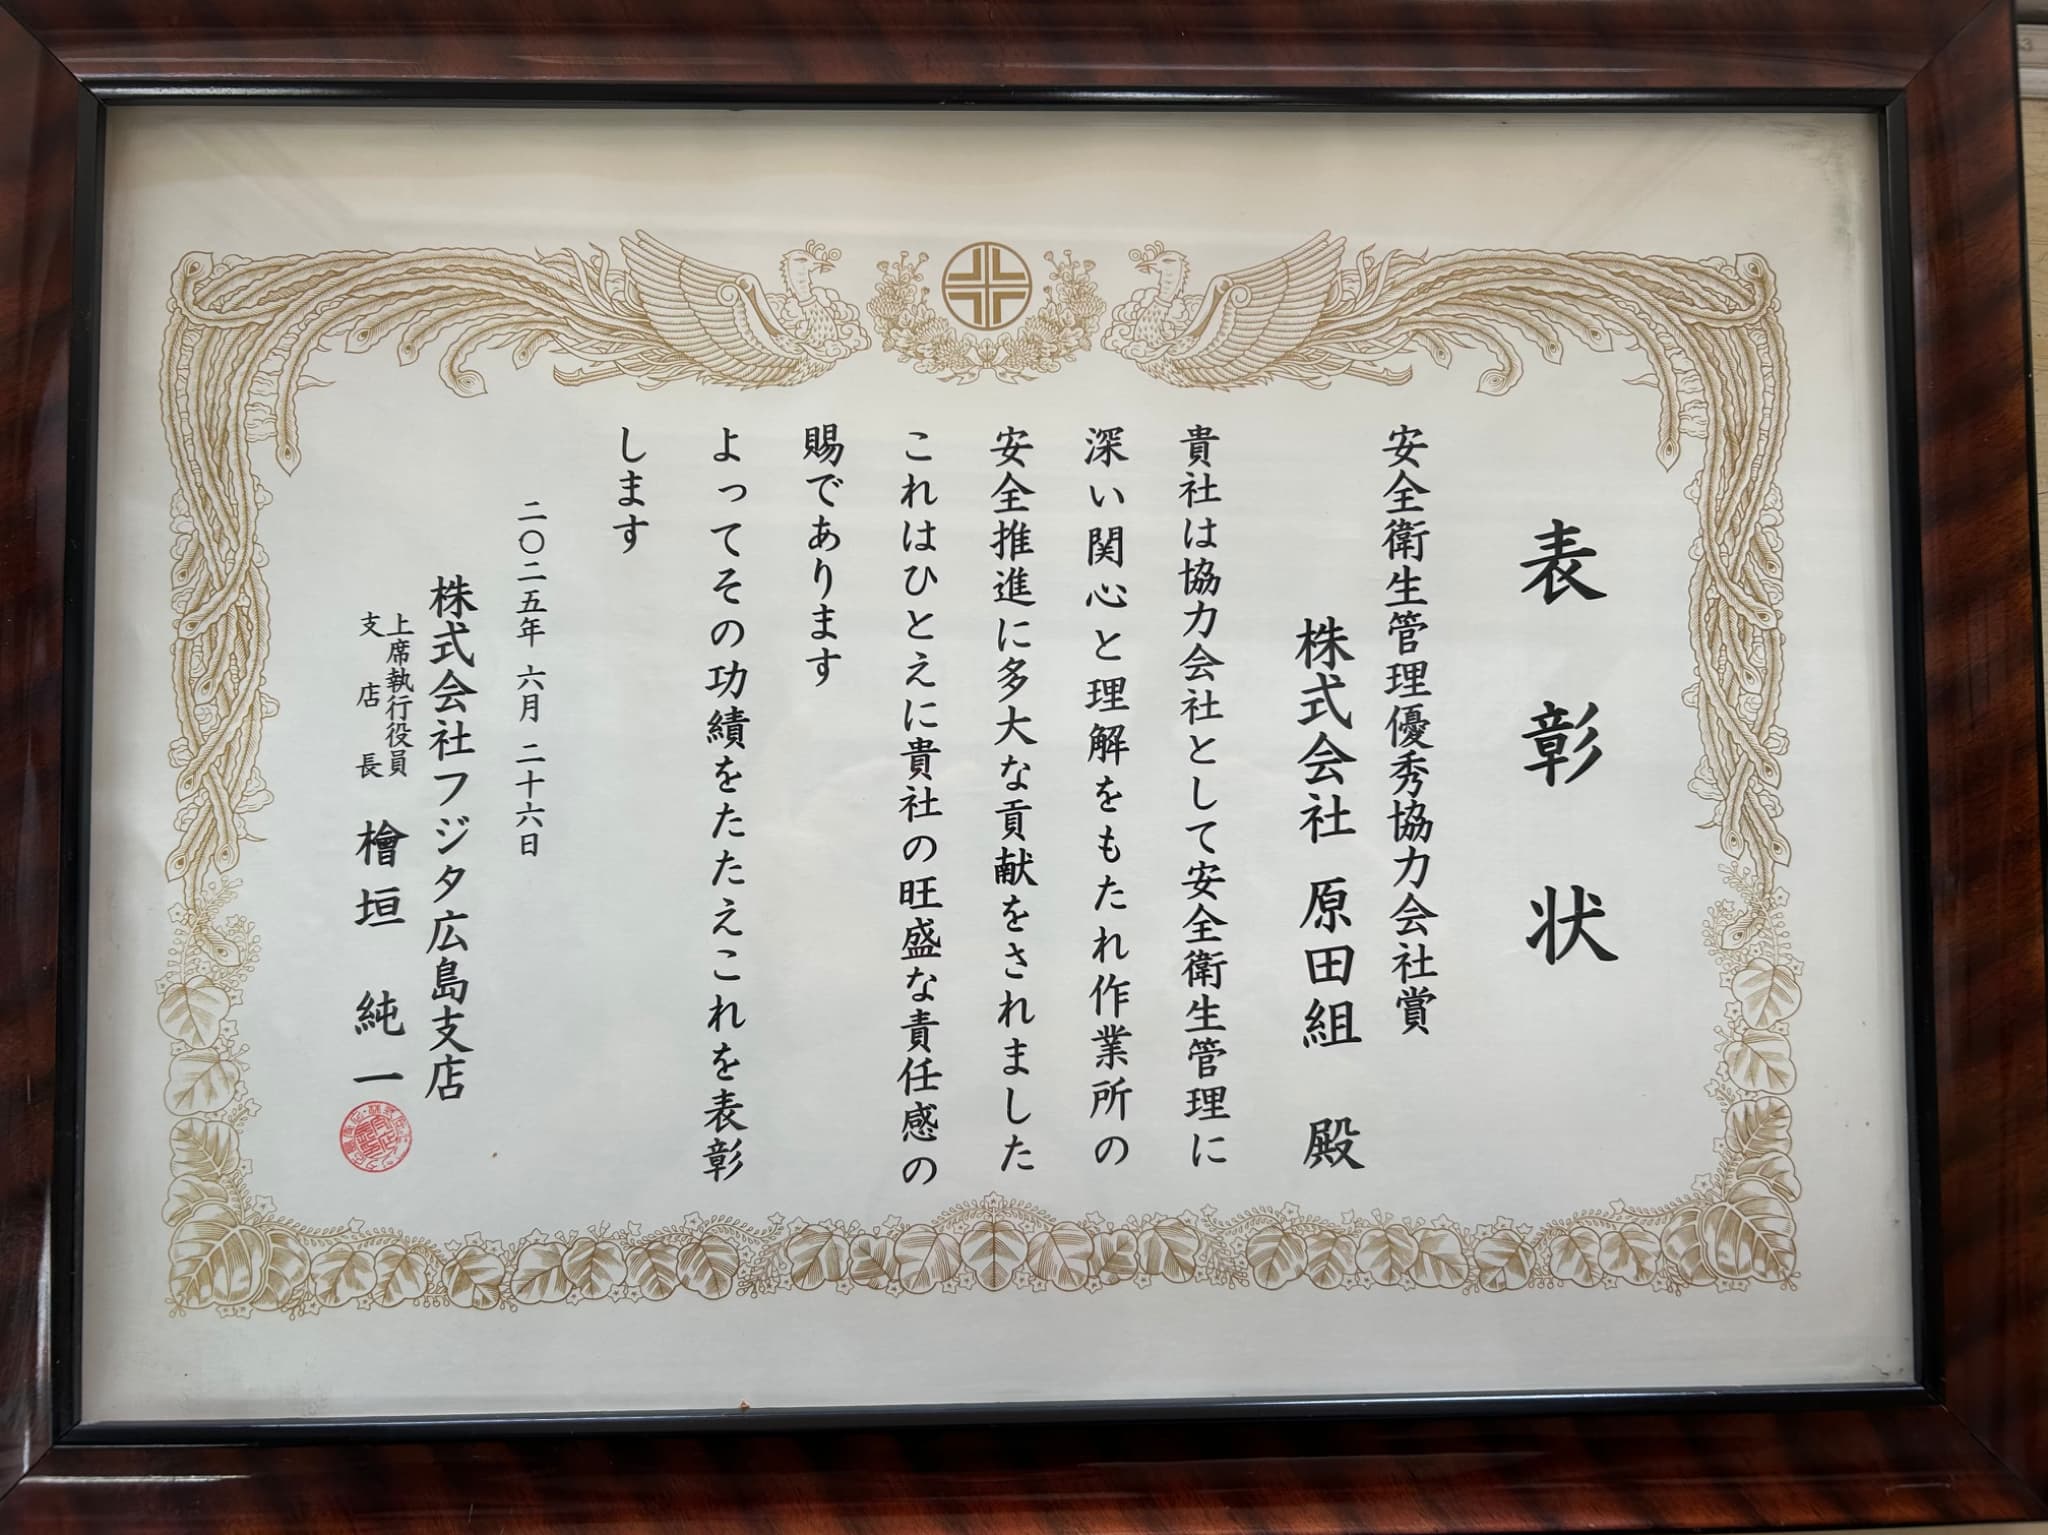 表彰状
安全衛生管理優秀協力会社賞
株式会社 原田組 殿
貴社は協力会社として安全衛生管理に
深い関心と理解をもたれ作業所の
安全推進に多大な貢献をされました
これはひとえに貴社の旺盛な責任感の
賜であります
よってその功績をたたえこれを表彰
します
二〇二五年 六月 二十六日
株式会社フジタ広島支店
上席執行役員
支店長 檜垣 純一